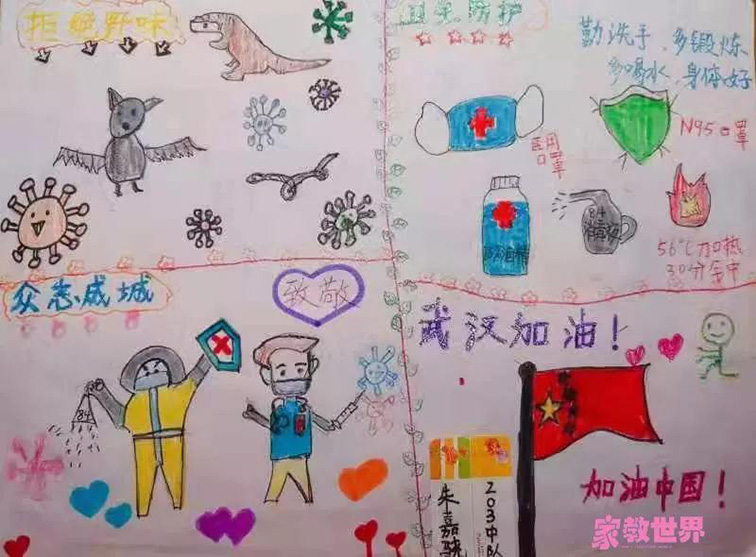 拒绝野味
卫生防护
勤洗手、多锻炼
多喝水、身体好
医用
口罩
N95口罩
84
56℃加热
30分钟
众志成城
致敬
84
武汉加油!
加油中国!
朱嘉骁
203中队
家教世界